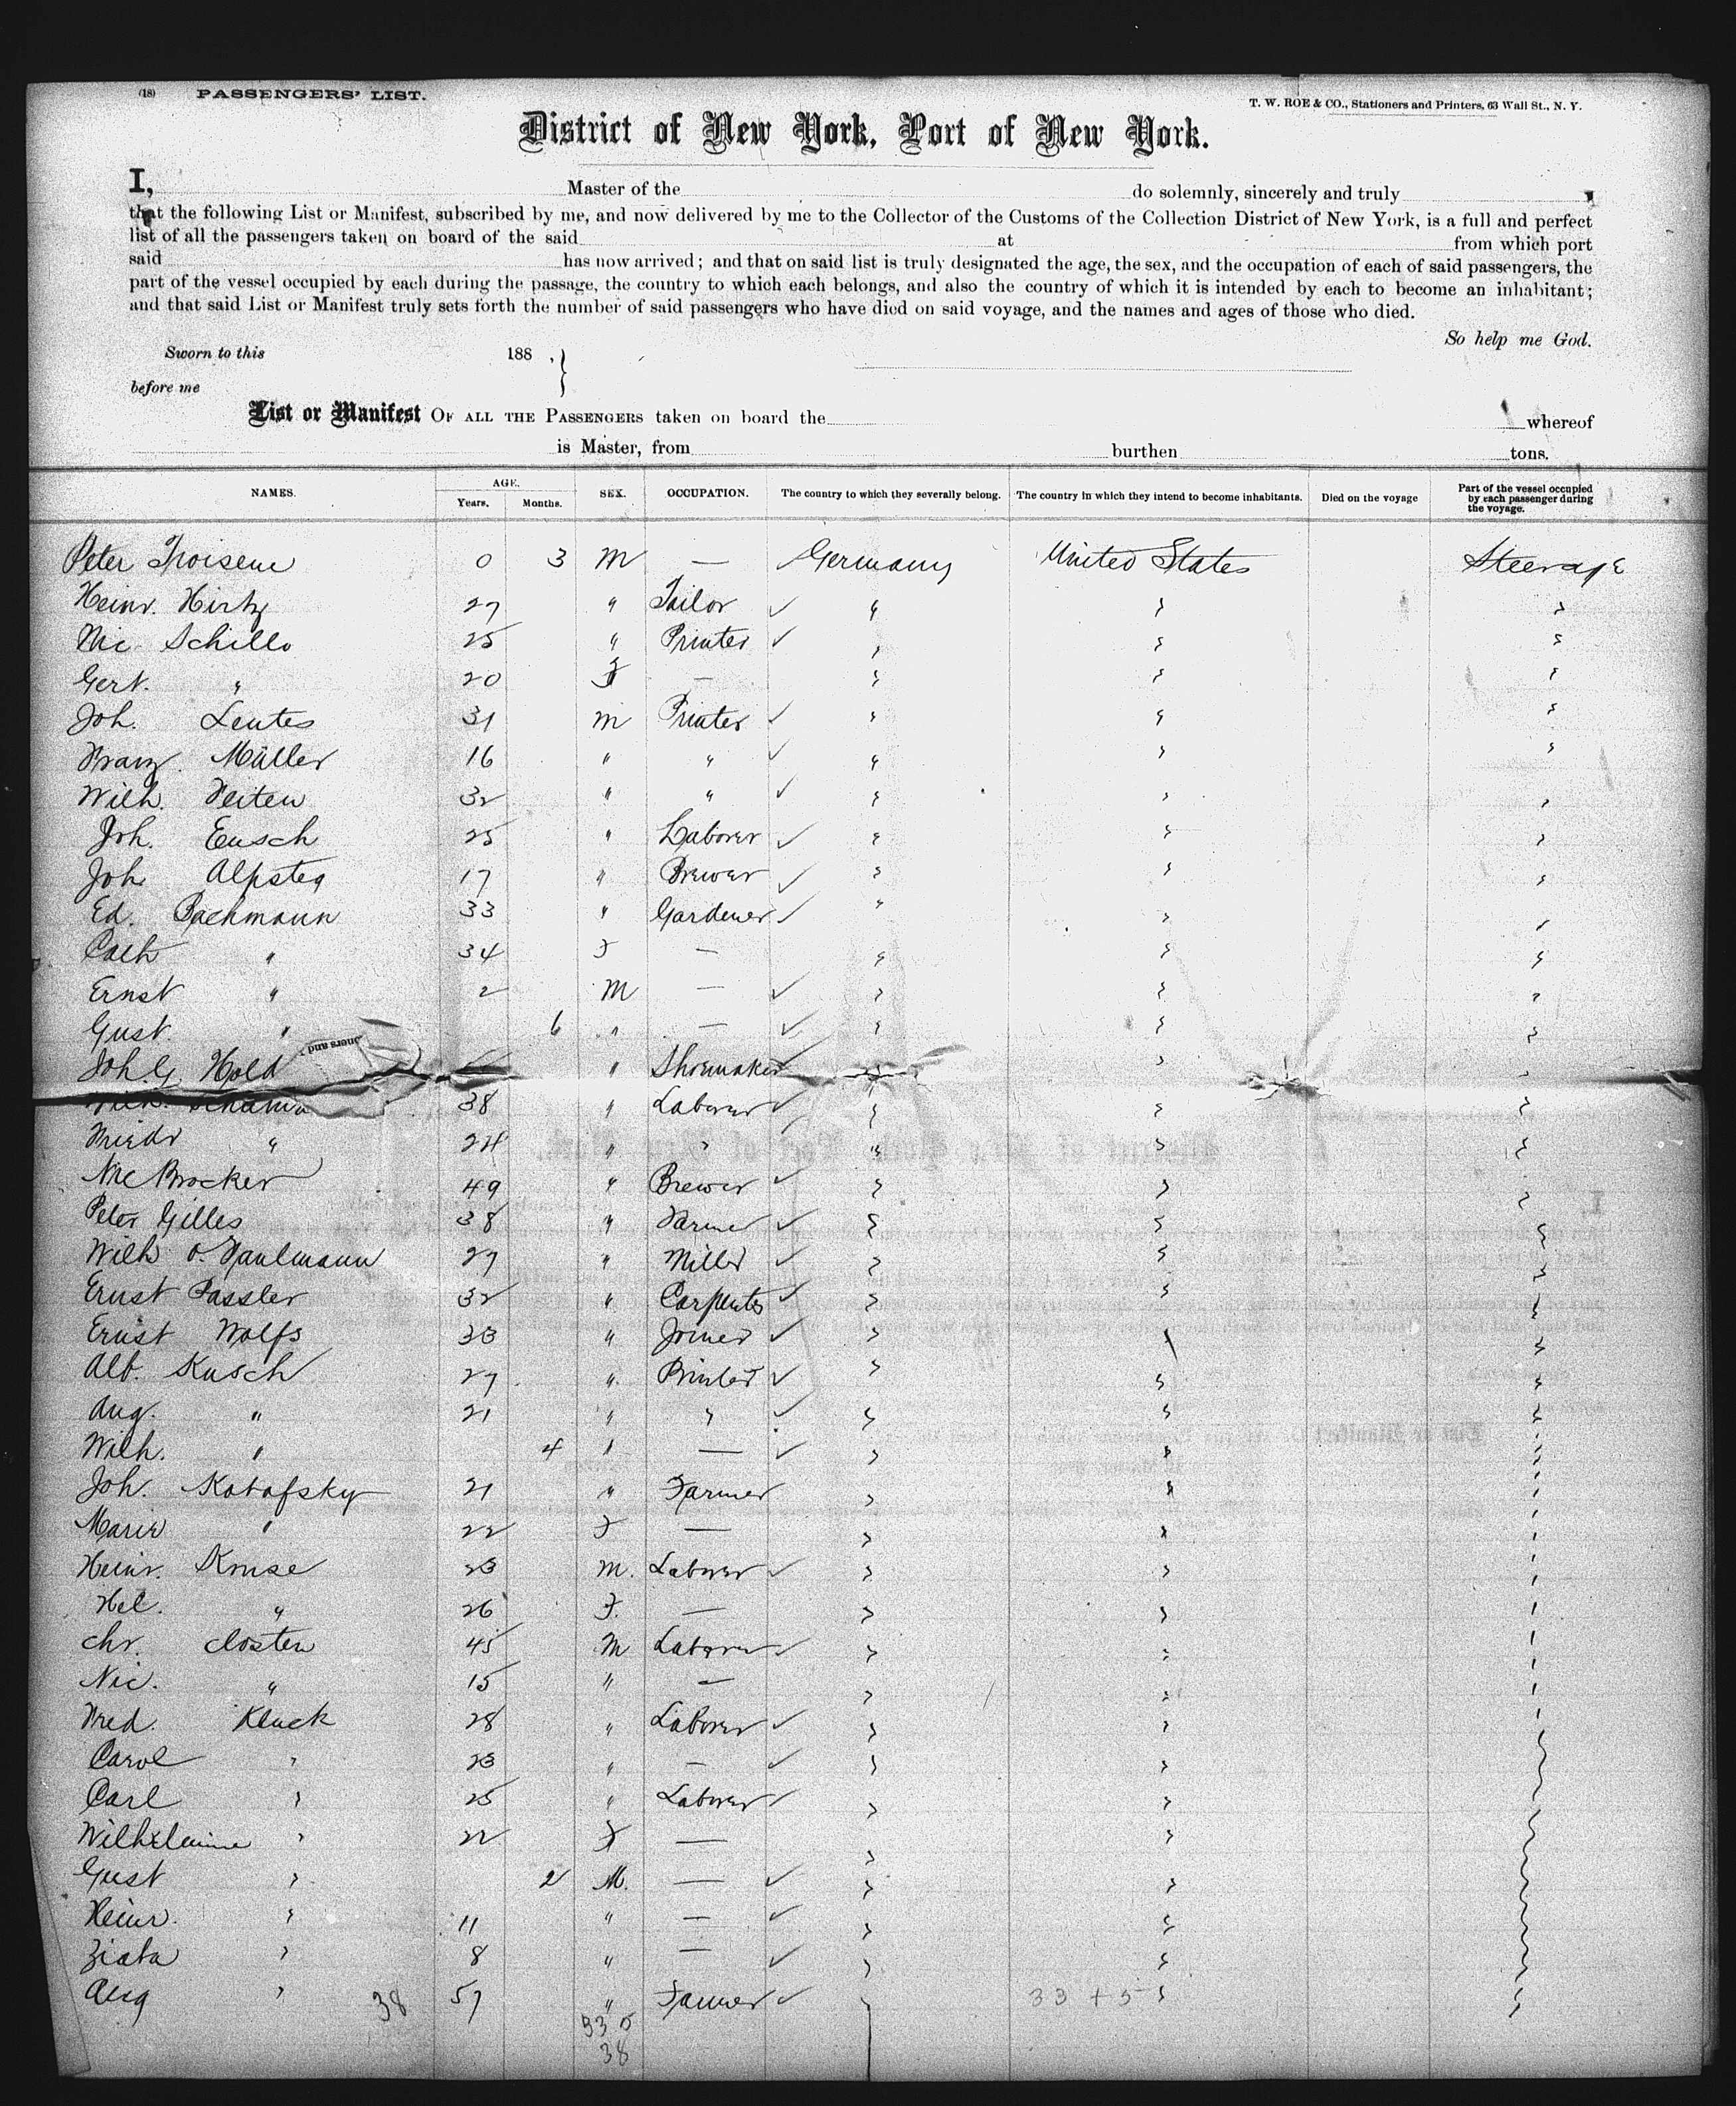 (18) PASSENGERS' LIST.
T. W. ROE & CO., Stationers and Printers, 63 Wall St., N. Y.
District of New York, Port of New York.
I, Master of the do solemnly, sincerely and truly
that the following List or Manifest, subscribed by me, and now delivered by me to the Collector of the Customs of the Collection District of New York, is a full and perfect
list of all the passengers taken on board of the said at from which port
said has now arrived; and that on said list is truly designated the age, the sex, and the occupation of each of said passengers, the
part of the vessel occupied by each during the passage, the country to which each belongs, and also the country of which it is intended by each to become an inhabitant;
and that said List or Manifest truly sets forth the number of said passengers who have died on said voyage, and the names and ages of those who died.
So help me God.
Sworn to this 188 ,
before me
List or Manifest OF ALL THE PASSENGERS taken on board the whereof
is Master, from burthen tons.
NAMES. AGE. Years. Months. SEX. OCCUPATION. The country to which they severally belong. The country in which they intend to become inhabitants. Died on the voyage Part of the vessel occupied by each passenger during the voyage.
Peter 0 3 M — Germany United States Steerage
Heinr. Hirtz 27 " Tailor ✓ " " "
Nic Schillo 25 " Printer ✓ " " "
Gert. " 20 F — " " "
Joh. Leutes 31 M Printer ✓ " " "
Franz. Müller 16 " " ✓ " " "
Wilh. Feiten 32 " " ✓ " " "
Joh. Eusch 25 " Laborer ✓ " " "
Joh Alpsteg 17 " Brewer ✓ " " "
Ed. Bachmann 33 " Gardener ✓ " " "
Cath " 34 F — " " "
Ernst " 2 M — ✓ " " "
Gust. " 6 " — ✓ " " "
Joh. G Hold " Shoemaker ✓ " " "
38 " Laborer ✓ " " "
Friedr " 24 " " " " "
Nic Brocker 49 " Brewer ✓ " " "
Peter Gilles 38 " Farmer ✓ " " "
Wilh 27 " Miller ✓ " " "
Ernst Passler 32 " Carpenter ✓ " " "
Ernst Wolfs 33 " Joiner ✓ " " "
Alb. Kusch 27 " Printer ✓ " " "
Aug. " 21 " " ✓ " " "
Wilh. " 4 " — ✓ " " "
Joh. Kotofsky 21 " Farmer " " "
Marie " 22 F — " " "
Heinr. Kruse 23 M. Laborer ✓ " " "
Hel. " 26 F. — " " "
Chr. Closten 45 M Laborer ✓ " " "
Nic. " 15 " — " " "
Fred. Kluck 28 " Laborer ✓ " " "
Carol " 23 " — ✓ " " "
Carl " 25 " Laborer ✓ " " "
Wilhelmine " 22 F — " " "
Gust " 2 M. — ✓ " " "
Heinr. " 11 " — ✓ " " "
" 8 " — ✓ " " "
Aug " 38 57 " Farmer ✓ " 33 + 5 " "
38